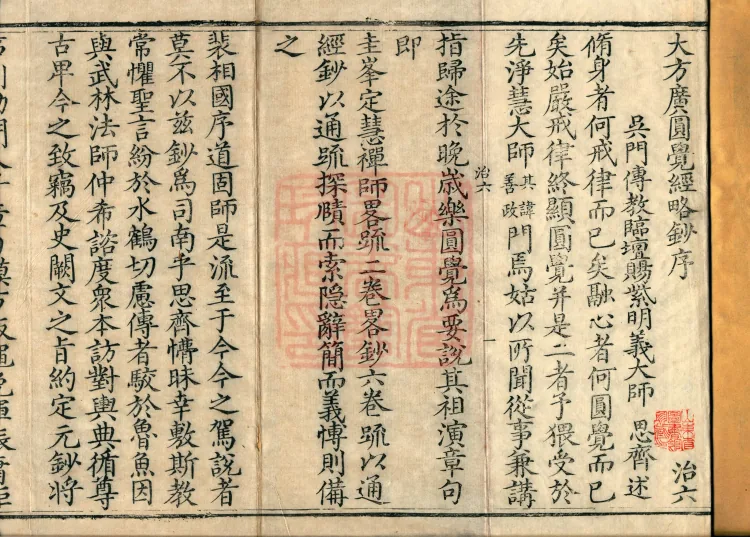 大方廣圓覺經略鈔序
治六
吳門傳教臨壇賜紫明義大師 思齊 述
脩身者何戒律而已矣融心者何圓覺而已
矣始嚴戒律終顯圓覺并是二者予猥受於
先淨慧大師其諱善政門焉姑以所聞從事兼講
治六
一
指歸途於晚歲樂圓覺為要說其祖演章句
即
圭峯定慧禪師畧疏二卷畧鈔六卷疏以通
經鈔以通疏探賾而索隐辭簡而義愽則備
之
裴相國序道固師是流至于今今之駕說者
莫不以兹鈔為司南乎思齊懵昧幸敷斯教
常懼聖言紛於水鶴切慮傳者駮於魯魚因
與武林法師仲希諮度衆本訪對輿典循尊
古畀今之致竊及史闕文之旨約定元鈔將